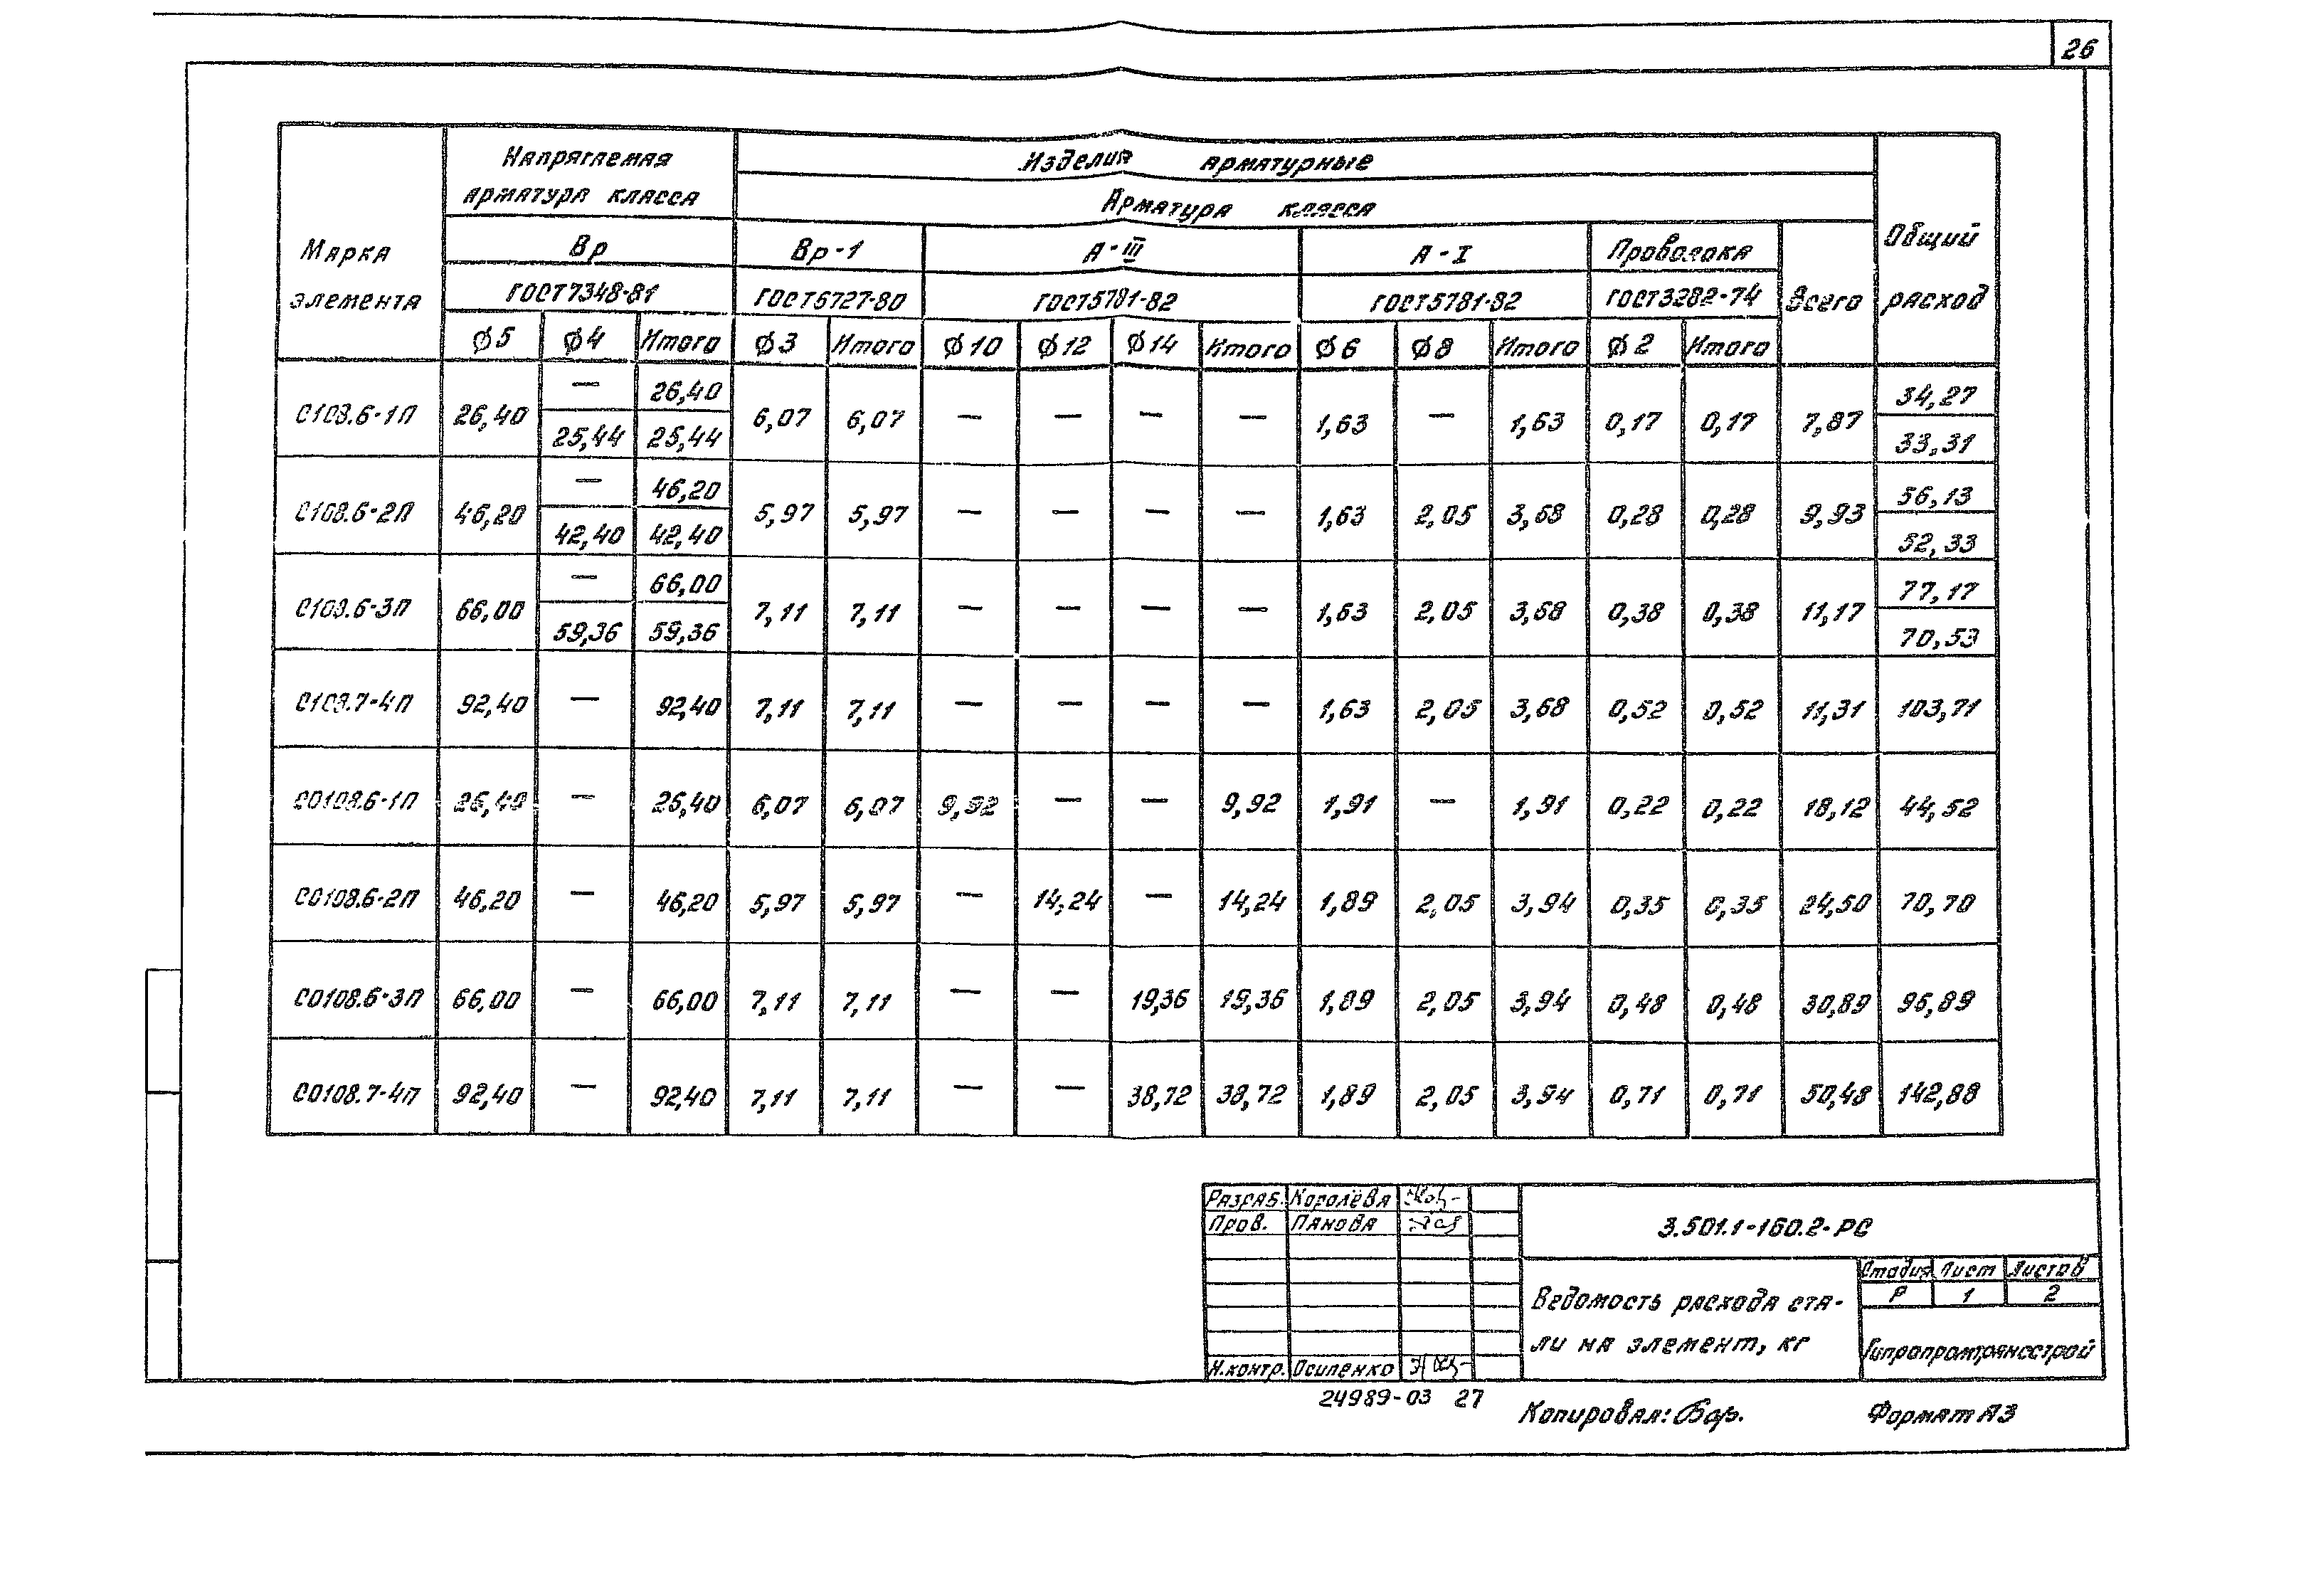 26
Марка элемента
Напрягаемая арматура класса
Изделия арматурные
Арматура класса
Общий расход
Вр
Вр-1
А-III
А-I
Проволока
Всего
ГОСТ7348-81
ГОСТ6727-80
ГОСТ5781-82
ГОСТ5781-82
ГОСТ3282-74
Ø5 Ø4 Итого Ø3 Итого Ø10 Ø12 Ø14 Итого Ø6 Ø8 Итого Ø2 Итого
— 26,40 34,27
С108.6-1П 26,40 6,07 6,07 — — — — 1,63 — 1,63 0,17 0,17 7,87
25,44 25,44 33,31
— 46,20 56,13
С108.6-2П 46,20 5,97 5,97 — — — — 1,63 2,05 3,68 0,28 0,28 9,93
42,40 42,40 52,33
— 66,00 77,17
С108.6-3П 66,00 7,11 7,11 — — — — 1,63 2,05 3,68 0,38 0,38 11,17
59,36 59,36 70,53
С108.7-4П 92,40 — 92,40 7,11 7,11 — — — — 1,63 2,05 3,68 0,52 0,52 11,31 103,71
СО108.6-1П 26,40 — 26,40 6,07 6,07 9,92 — — 9,92 1,91 — 1,91 0,22 0,22 18,12 44,52
СО108.6-2П 46,20 — 46,20 5,97 5,97 — 14,24 — 14,24 1,89 2,05 3,94 0,35 0,35 24,50 70,70
СО108.6-3П 66,00 — 66,00 7,11 7,11 — — 19,36 19,36 1,89 2,05 3,94 0,48 0,48 30,89 96,89
СО108.7-4П 92,40 — 92,40 7,11 7,11 — — 38,72 38,72 1,89 2,05 3,94 0,71 0,71 50,48 142,88
Разраб. Королёва
Пров. Панова
Н.контр. Осипенко
3.501.1-160.2-РС
Ведомость расхода ста-
ли на элемент, кг
Стадия Лист Листов
Р 1 2
Гипропромтрансстрой
24989-03 27
Копировал: Бор.
Формат А3